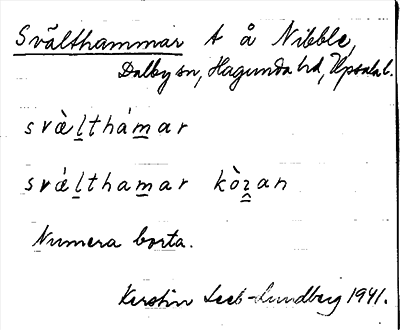 Svälthammar t å Nibble,
Dalby sn, Hagunda hd, Upsala l.
svæ̀l̲thám̲ar
svǽl̲tham̲ar kòẑ̲an
Numera borta.
Kerstin Leeb-Lundberg 1941.